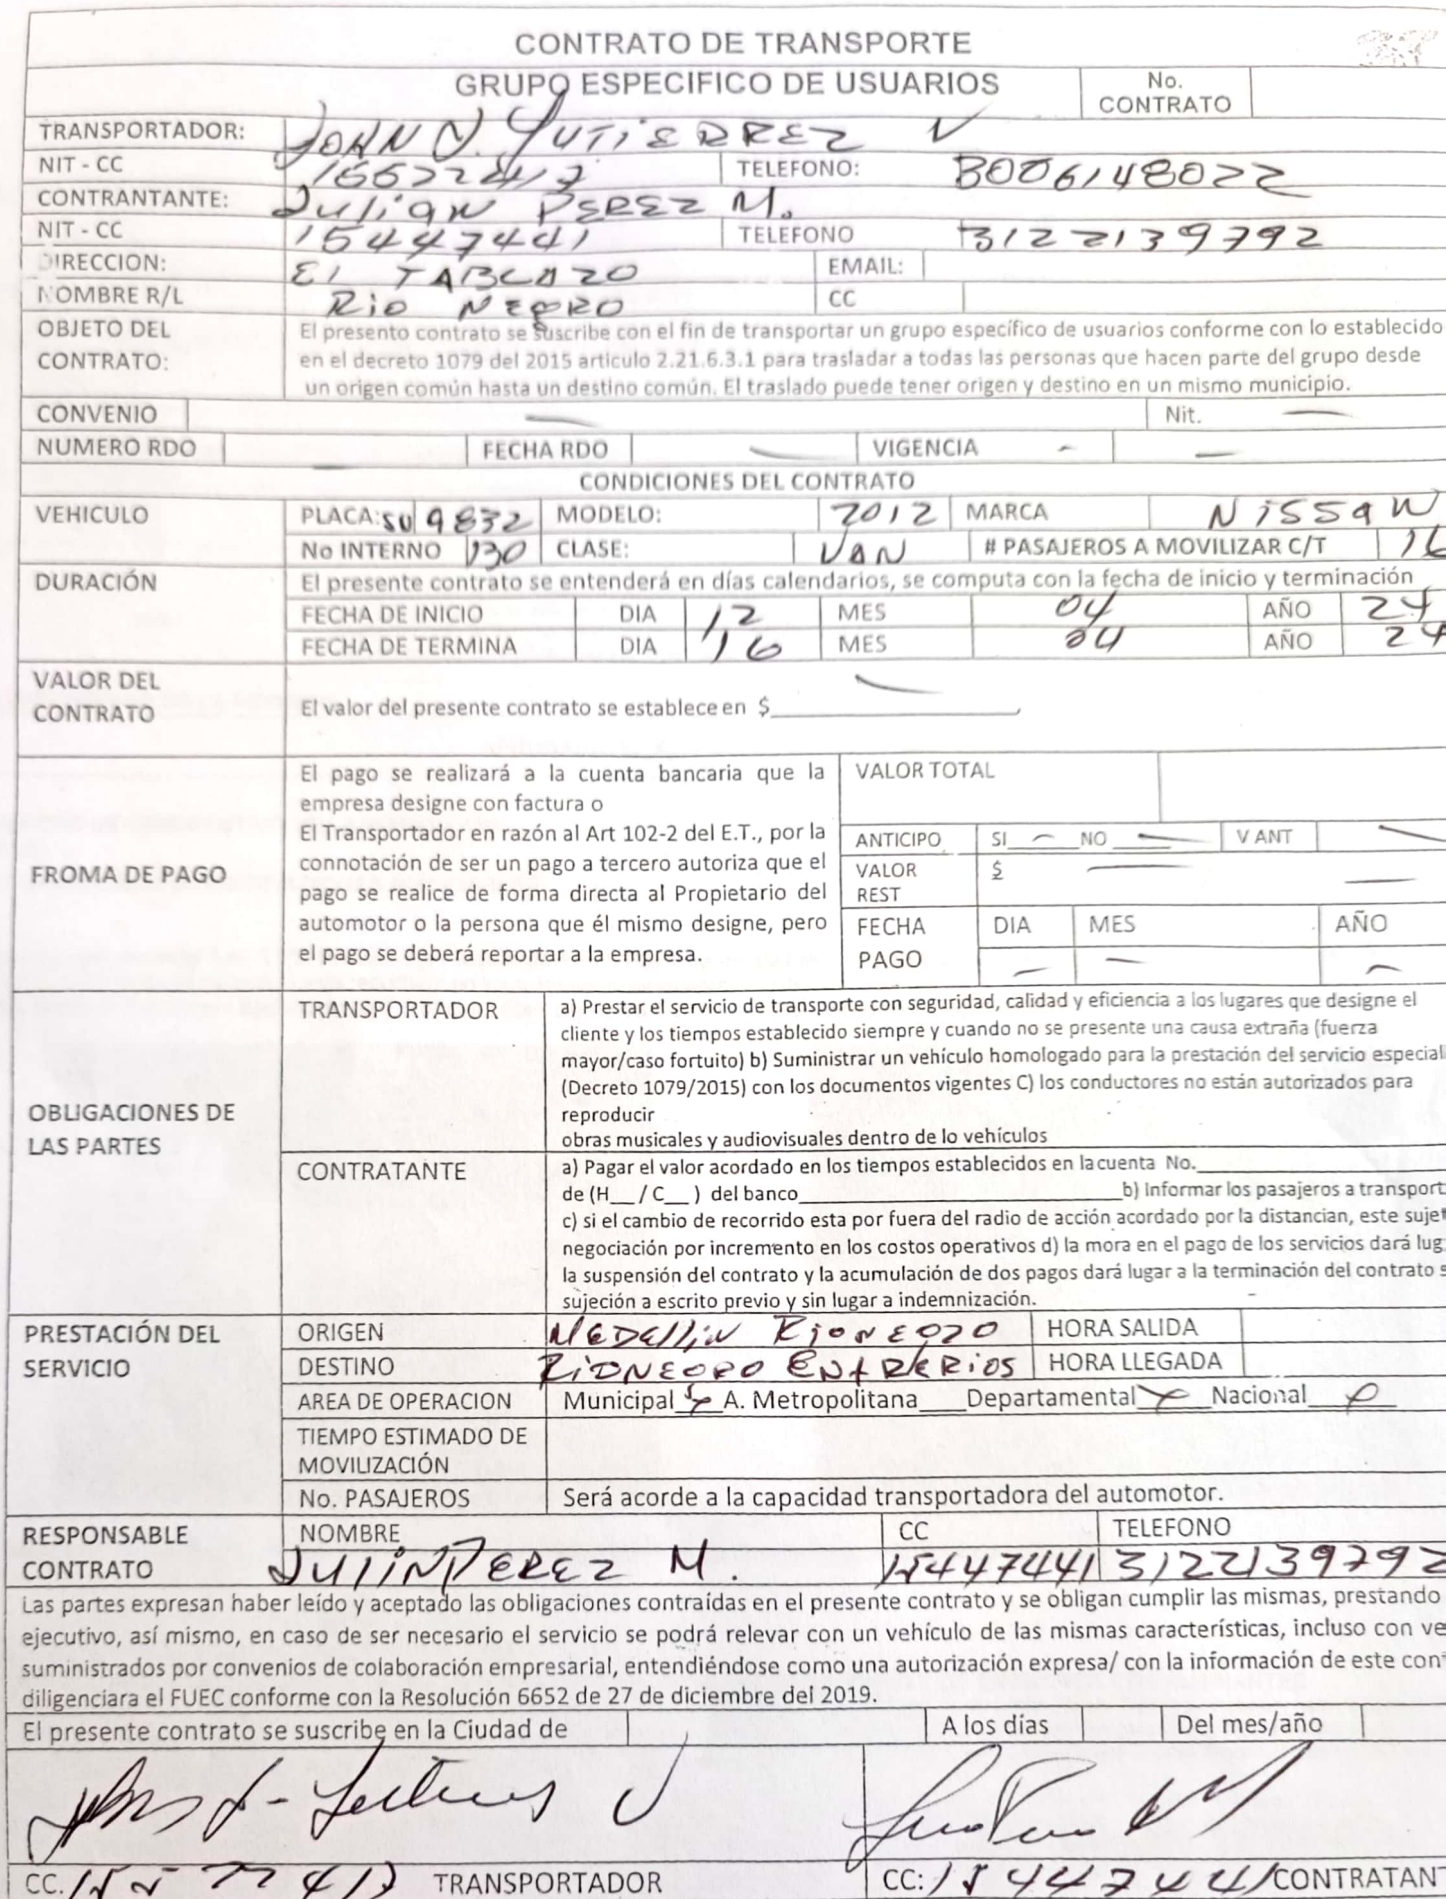 CONTRATO DE TRANSPORTE
GRUPO ESPECIFICO DE USUARIOS No. CONTRATO
TRANSPORTADOR: JOHN J. GUTIERREZ V
NIT - CC TELEFONO: 3006148022
CONTRANTANTE: Julian PEREZ M.
NIT - CC 15447441 TELEFONO 3122139792
DIRECCION: El TABLAZO EMAIL:
NOMBRE R/L Rio NEGRO CC
OBJETO DEL CONTRATO: El presento contrato se suscribe con el fin de transportar un grupo específico de usuarios conforme con lo establecido
en el decreto 1079 del 2015 articulo 2.21.6.3.1 para trasladar a todas las personas que hacen parte del grupo desde
un origen común hasta un destino común. El traslado puede tener origen y destino en un mismo municipio.
CONVENIO — Nit. —
NUMERO RDO — FECHA RDO — VIGENCIA - —
CONDICIONES DEL CONTRATO
VEHICULO PLACA: SU 9832 MODELO: 2012 MARCA NiSSaN
No INTERNO 130 CLASE: VAN # PASAJEROS A MOVILIZAR C/T 16
DURACIÓN El presente contrato se entenderá en días calendarios, se computa con la fecha de inicio y terminación
FECHA DE INICIO DIA 12 MES 04 AÑO 24
FECHA DE TERMINA DIA 16 MES 04 AÑO 24
VALOR DEL CONTRATO El valor del presente contrato se establece en $__________
FROMA DE PAGO
El pago se realizará a la cuenta bancaria que la
empresa designe con factura o
El Transportador en razón al Art 102-2 del E.T., por la
connotación de ser un pago a tercero autoriza que el
pago se realice de forma directa al Propietario del
automotor o la persona que él mismo designe, pero
el pago se deberá reportar a la empresa.
VALOR TOTAL
ANTICIPO SI — NO — V ANT —
VALOR REST $ — —
FECHA PAGO DIA MES AÑO
— — —
OBLIGACIONES DE LAS PARTES
TRANSPORTADOR a) Prestar el servicio de transporte con seguridad, calidad y eficiencia a los lugares que designe el
cliente y los tiempos establecido siempre y cuando no se presente una causa extraña (fuerza
mayor/caso fortuito) b) Suministrar un vehículo homologado para la prestación del servicio especial
(Decreto 1079/2015) con los documentos vigentes C) los conductores no están autorizados para
reproducir
obras musicales y audiovisuales dentro de lo vehículos
CONTRATANTE a) Pagar el valor acordado en los tiempos establecidos en lacuenta No.__________
de (H__ / C__ ) del banco__________b) Informar los pasajeros a transport
c) si el cambio de recorrido esta por fuera del radio de acción acordado por la distancian, este sujet
negociación por incremento en los costos operativos d) la mora en el pago de los servicios dará lug
la suspensión del contrato y la acumulación de dos pagos dará lugar a la terminación del contrato s
sujeción a escrito previo y sin lugar a indemnización.
PRESTACIÓN DEL SERVICIO ORIGEN MEDELLIN RIONEGRO HORA SALIDA
DESTINO RIONEGRO ENtRERRIOS HORA LLEGADA
AREA DE OPERACION Municipal x A. Metropolitana____Departamental x Nacional x
TIEMPO ESTIMADO DE
MOVILIZACIÓN
No. PASAJEROS Será acorde a la capacidad transportadora del automotor.
RESPONSABLE CONTRATO NOMBRE CC TELEFONO
JULIN PEREZ M. 15447441 3122139792
Las partes expresan haber leído y aceptado las obligaciones contraídas en el presente contrato y se obligan cumplir las mismas, prestando
ejecutivo, así mismo, en caso de ser necesario el servicio se podrá relevar con un vehículo de las mismas características, incluso con ve
suministrados por convenios de colaboración empresarial, entendiéndose como una autorización expresa/ con la información de este con
diligenciara el FUEC conforme con la Resolución 6652 de 27 de diciembre del 2019.
El presente contrato se suscribe en la Ciudad de A los días Del mes/año
CC. TRANSPORTADOR CC: 15447441 CONTRATANT